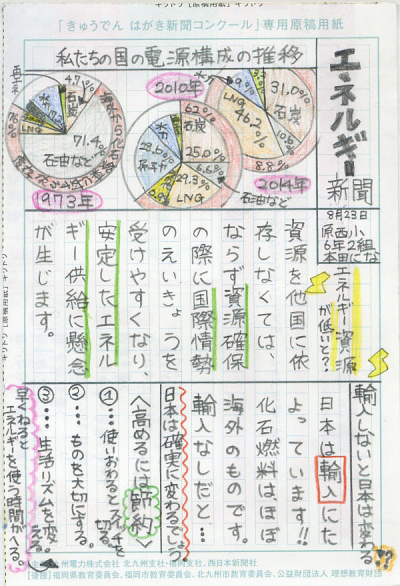 「きゅうでん はがき新聞コンクール」専用原稿用紙
エネルギー
新聞
8月23日
原西小
6年2組
本田にな
私たちの国の電源構成の推移
1973年
4.7%
石炭
LNG
71.4%
石油など
2010年
62%
石炭
25.0%
6.6%
石油など
29.3%
LNG
28.6%
原子力
2014年
31.0%
石炭
46.2%
LNG
8.8%
エネルギー資源
が低いと??
資源を他国に依
存しなくては、
ならず資源確保
の際に国際情勢
のえいきょうを
受けやすくなり、
安定したエネル
ギー供給に懸念
が生じます。
輸入しないと日本は変わる⁉
日本は輸入にた
よっています!!
化石燃料はほぼ
海外のものです。
輸入なしだと…
日本は確実に変わるでしょう
〈高めるには節約〉
①…使いおわるとスイッチを
切る。
②…ものを大切にする。
③…生活リズムを変える。
早くねると
エネルギーを使う時間がへる。
九州電力株式会社 北九州支社・福岡支社、西日本新聞社
【後援】福岡県教育委員会、福岡市教育委員会、北九州市教育委員会、公益財団法人 理想教育財団